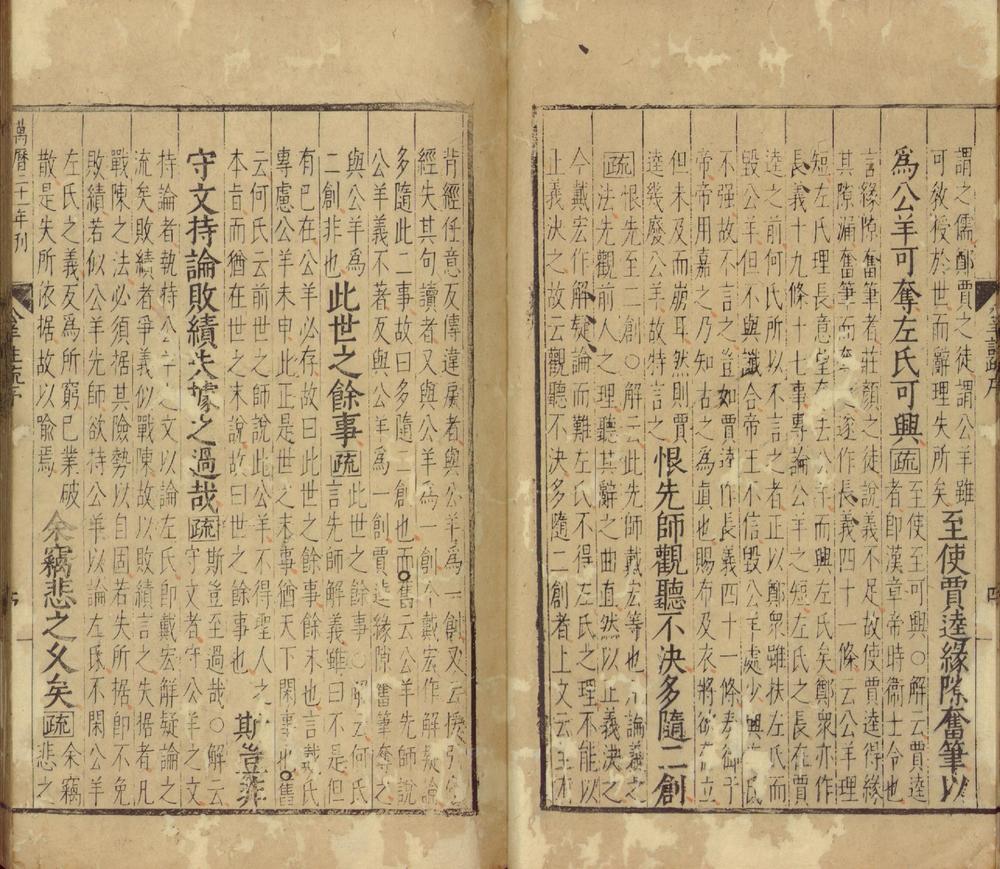 謂之儒鄭賈之徒謂公羊雖
可敎授於世而辭理失所矣
至使賈逵緣隙奮筆以
為公羊可奪左氏可興
疏
至使至可興○解云賈逵
者即漢章帝時衛士令也
言緣隙奮筆者莊顏之徒說義不足故使賈逵得緣
其隙漏奮筆而奪之遂作長義四十一條云公羊理
短左氏理長意望奪去公羊而興左氏矣鄭衆亦作
長義十九條十七事專論公羊之短左氏之長在賈
逵之前何氏所以不言之者正以鄭衆雖扶左氏而
毀公羊但不與讖合帝王不信毀公羊處少興左氏
不强故不言之豈如賈逵作長義四十一條奏御于
帝帝用嘉之乃知古之為真也賜布及衣將欲存立
但未及而崩耳然則賈
逵幾廢公羊故特言之
恨先師觀聽不決多隨二創
疏
恨先至二創○解云此先師戴宏等也凡論義之
法先觀前人之理聽其辭之曲直然以正義決之
今戴宏作解疑論而難左氏不得左氏之理不能以
正義決之故云觀聽不決多隨二創者上文云至有
背經任意反傳違戾者與公羊為一創又云援引他
經失其句讀者又與公羊為一創今戴宏作解疑論
多隨此二事故曰多隨二創也而舊云公羊先師說
公羊義不著反與公羊為一創賈逵緣隙奮筆奪之
與公羊為
二創非也
此世之餘事
疏
此世之餘事○解云何氏
言先師解義雖曰不是但
有已在公羊必存故曰此世之餘事餘末也言戴氏
專慮公羊未申此正是世之末事猶天下閑事也舊
云何氏云前世之師說此公羊不得聖人之
本旨而猶在世之末說故曰世之餘事也
斯豈非
守文持論敗績失據之過哉
疏
斯豈至過哉○解云
守文者守公羊之文
持論者執持公羊之文以論左氏即戴宏解疑論之
流矣敗績者爭義似戰陳故以敗績言之失據者凡
戰陳之法必須據其險勢以自固若失所據即不免
敗績若似公羊先師欲持公羊以論左氏不閑公羊
左氏之義反為所窮已業破
散是失所依據故以喻焉
余竊悲之久矣
疏
余竊
悲之
萬曆二十一年刊